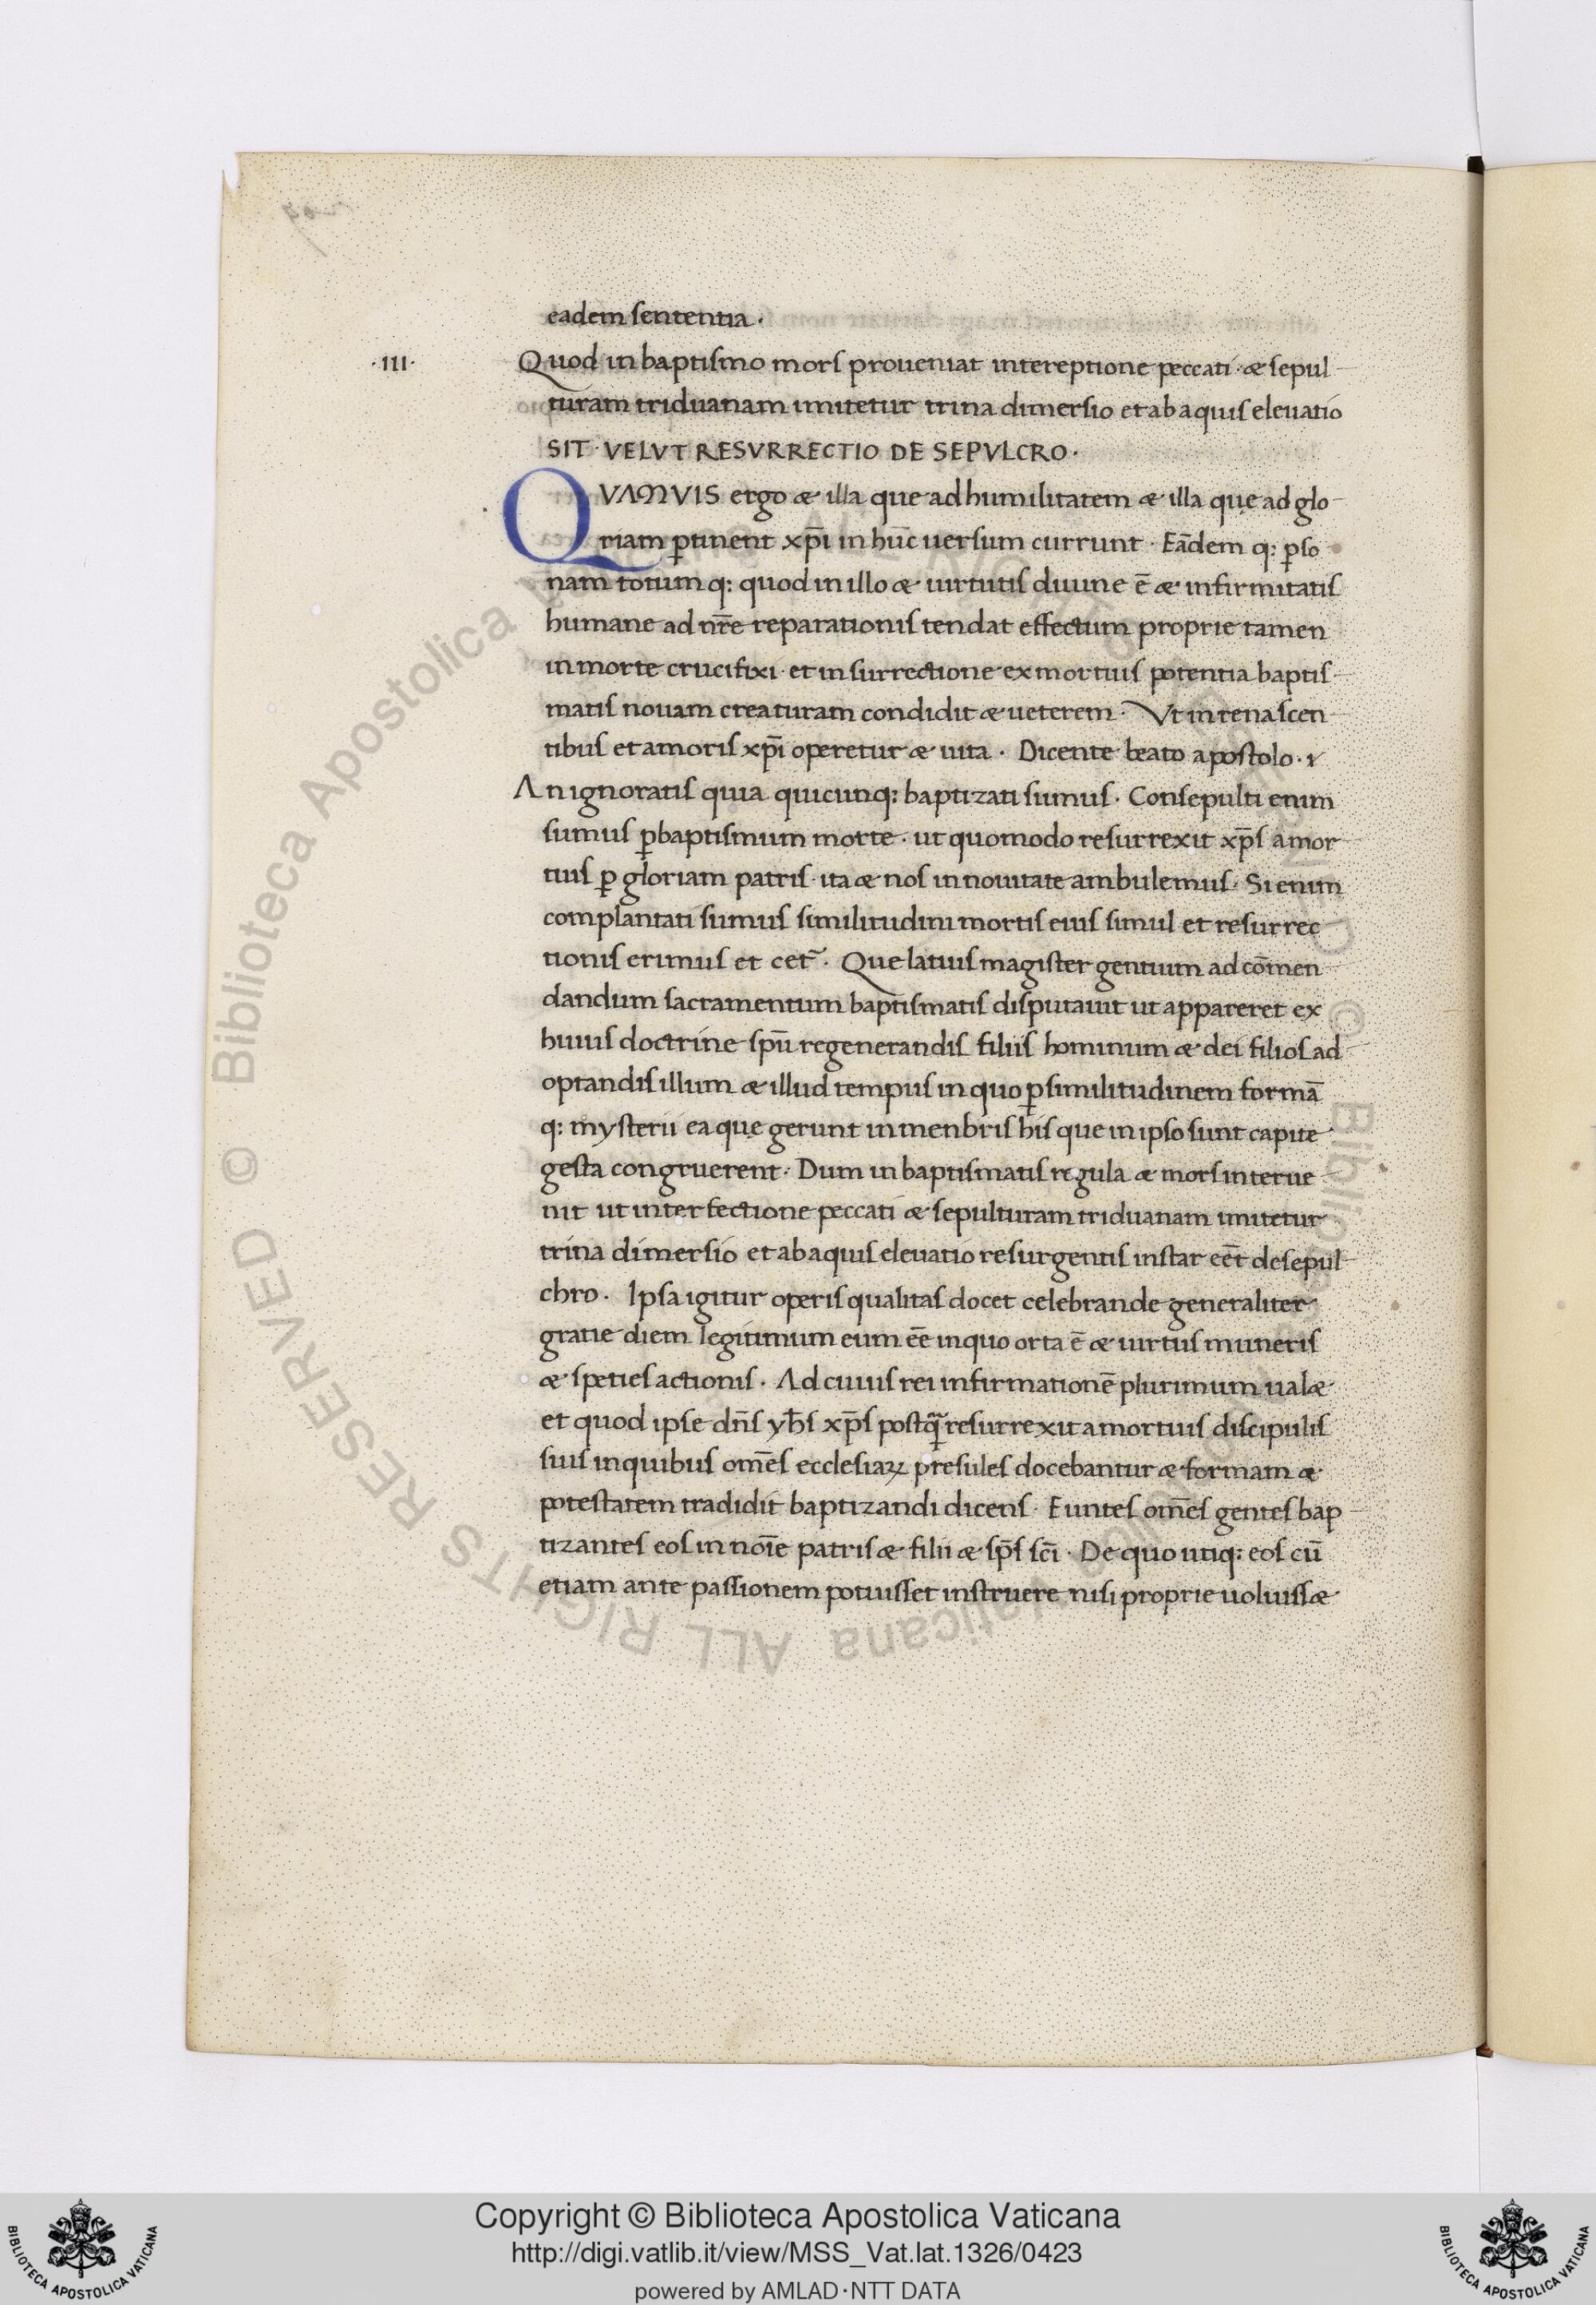 eadem sententia ·
·III· Quod in baptismo mors proueniat intereptione peccati · & sepul-
turam triduanam imitetur trina dimersio et ab aquis eleuatio
SIT · VELVT RESVRRECTIO DE SEPVLCRO ·
QVAMVIS ergo & illa que ad humilitatem & illa quę ad glo-
riam ꝑtinent xp̄i in hūc uersum currunt · Eādem q: ꝑso
nam totum q: quod in illo & uirtutis diuine ē & infirmitatis
humane ad nr̄e reparationis tendat effectum proprie tamen
in morte crucifixi · et in surrectione ex mortuis potentia baptis-
matis nouam creaturam condidit & ueterem · Vt in renascen-
tibus et amoris xp̄i operetur & uita · Dicente beato apostolo ·
An ignoratis quia quicunq: baptizati sumus · Consepulti enim
sumus ꝑ baptismum morte · ut quomodo resurrexit xp̄s a mor-
tuis ꝑ gloriam patris · ita & nos in nouitate ambulemus · Si enim
complantati sumus similitudini mortis eius simul et resurrec
tionis erimus et cet̃ · Que latius magister gentium ad cōmen
dandum sacramentum baptismatis disputauit ut appareret ex
huius doctrine spū regenerandis filiis hominum & dei filios ad-
optandis illum & illud tempus in quo ꝑ similitudinem formā
q: mysterii ea quę gerunt in menbris his que in ipso sunt capite
gesta congruerent · Dum in baptismatis regula & mors interue-
nit ut interfectione peccati & sepulturam triduanam imitetur
trina dimersio et ab aquis eleuatio resurgentis instar eēt de sepul-
chro · Ipsa igitur operis qualitas docet celebrande generaliter
gratie diem legitimum eum eē in quo orta ē & uirtus muneris
& speties actionis · Ad cuius rei infirmationē plurimum ual&
et quod ipse dn̄s yħs xp̄s postq̄ resurrexit a mortuis discipulis
suis in quibus om̄es ecclesiaꝝ presules docebantur & formam &
potestatem tradidit baptizandi dicens · Euntes om̄es gentes bap-
tizantes eos in noīe patris & filii & sp̄s sc̄i · De quo utiq: eos cū
etiam ante passionem potuisset instruere nisi proprie uoluiss&
© Biblioteca Apostolica Vaticana ALL RIGHTS RESERVED
Copyright © Biblioteca Apostolica Vaticana
http://digi.vatlib.it/view/MSS_Vat.lat.1326/0423
powered by AMLAD·NTT DATA
BIBLIOTECA APOSTOLICA VATICANA
BIBLIOTECA APOSTOLICA VATICANA